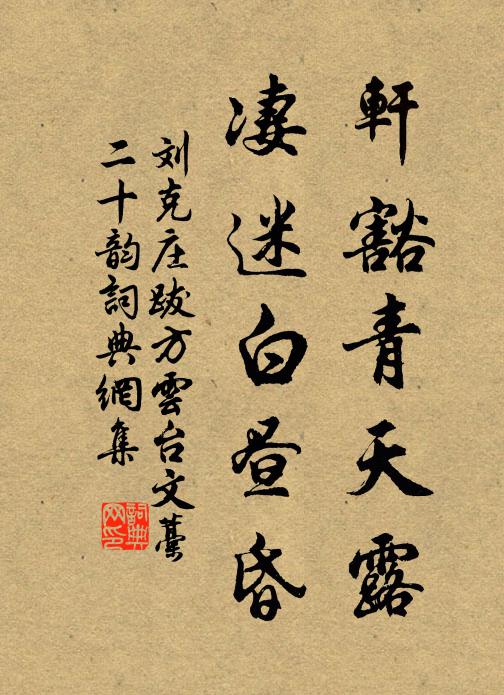 軒豁青天露
凄迷白昼昏
刘克庄跋方雲台文藁
二十韵詞典網集
詞典
网印